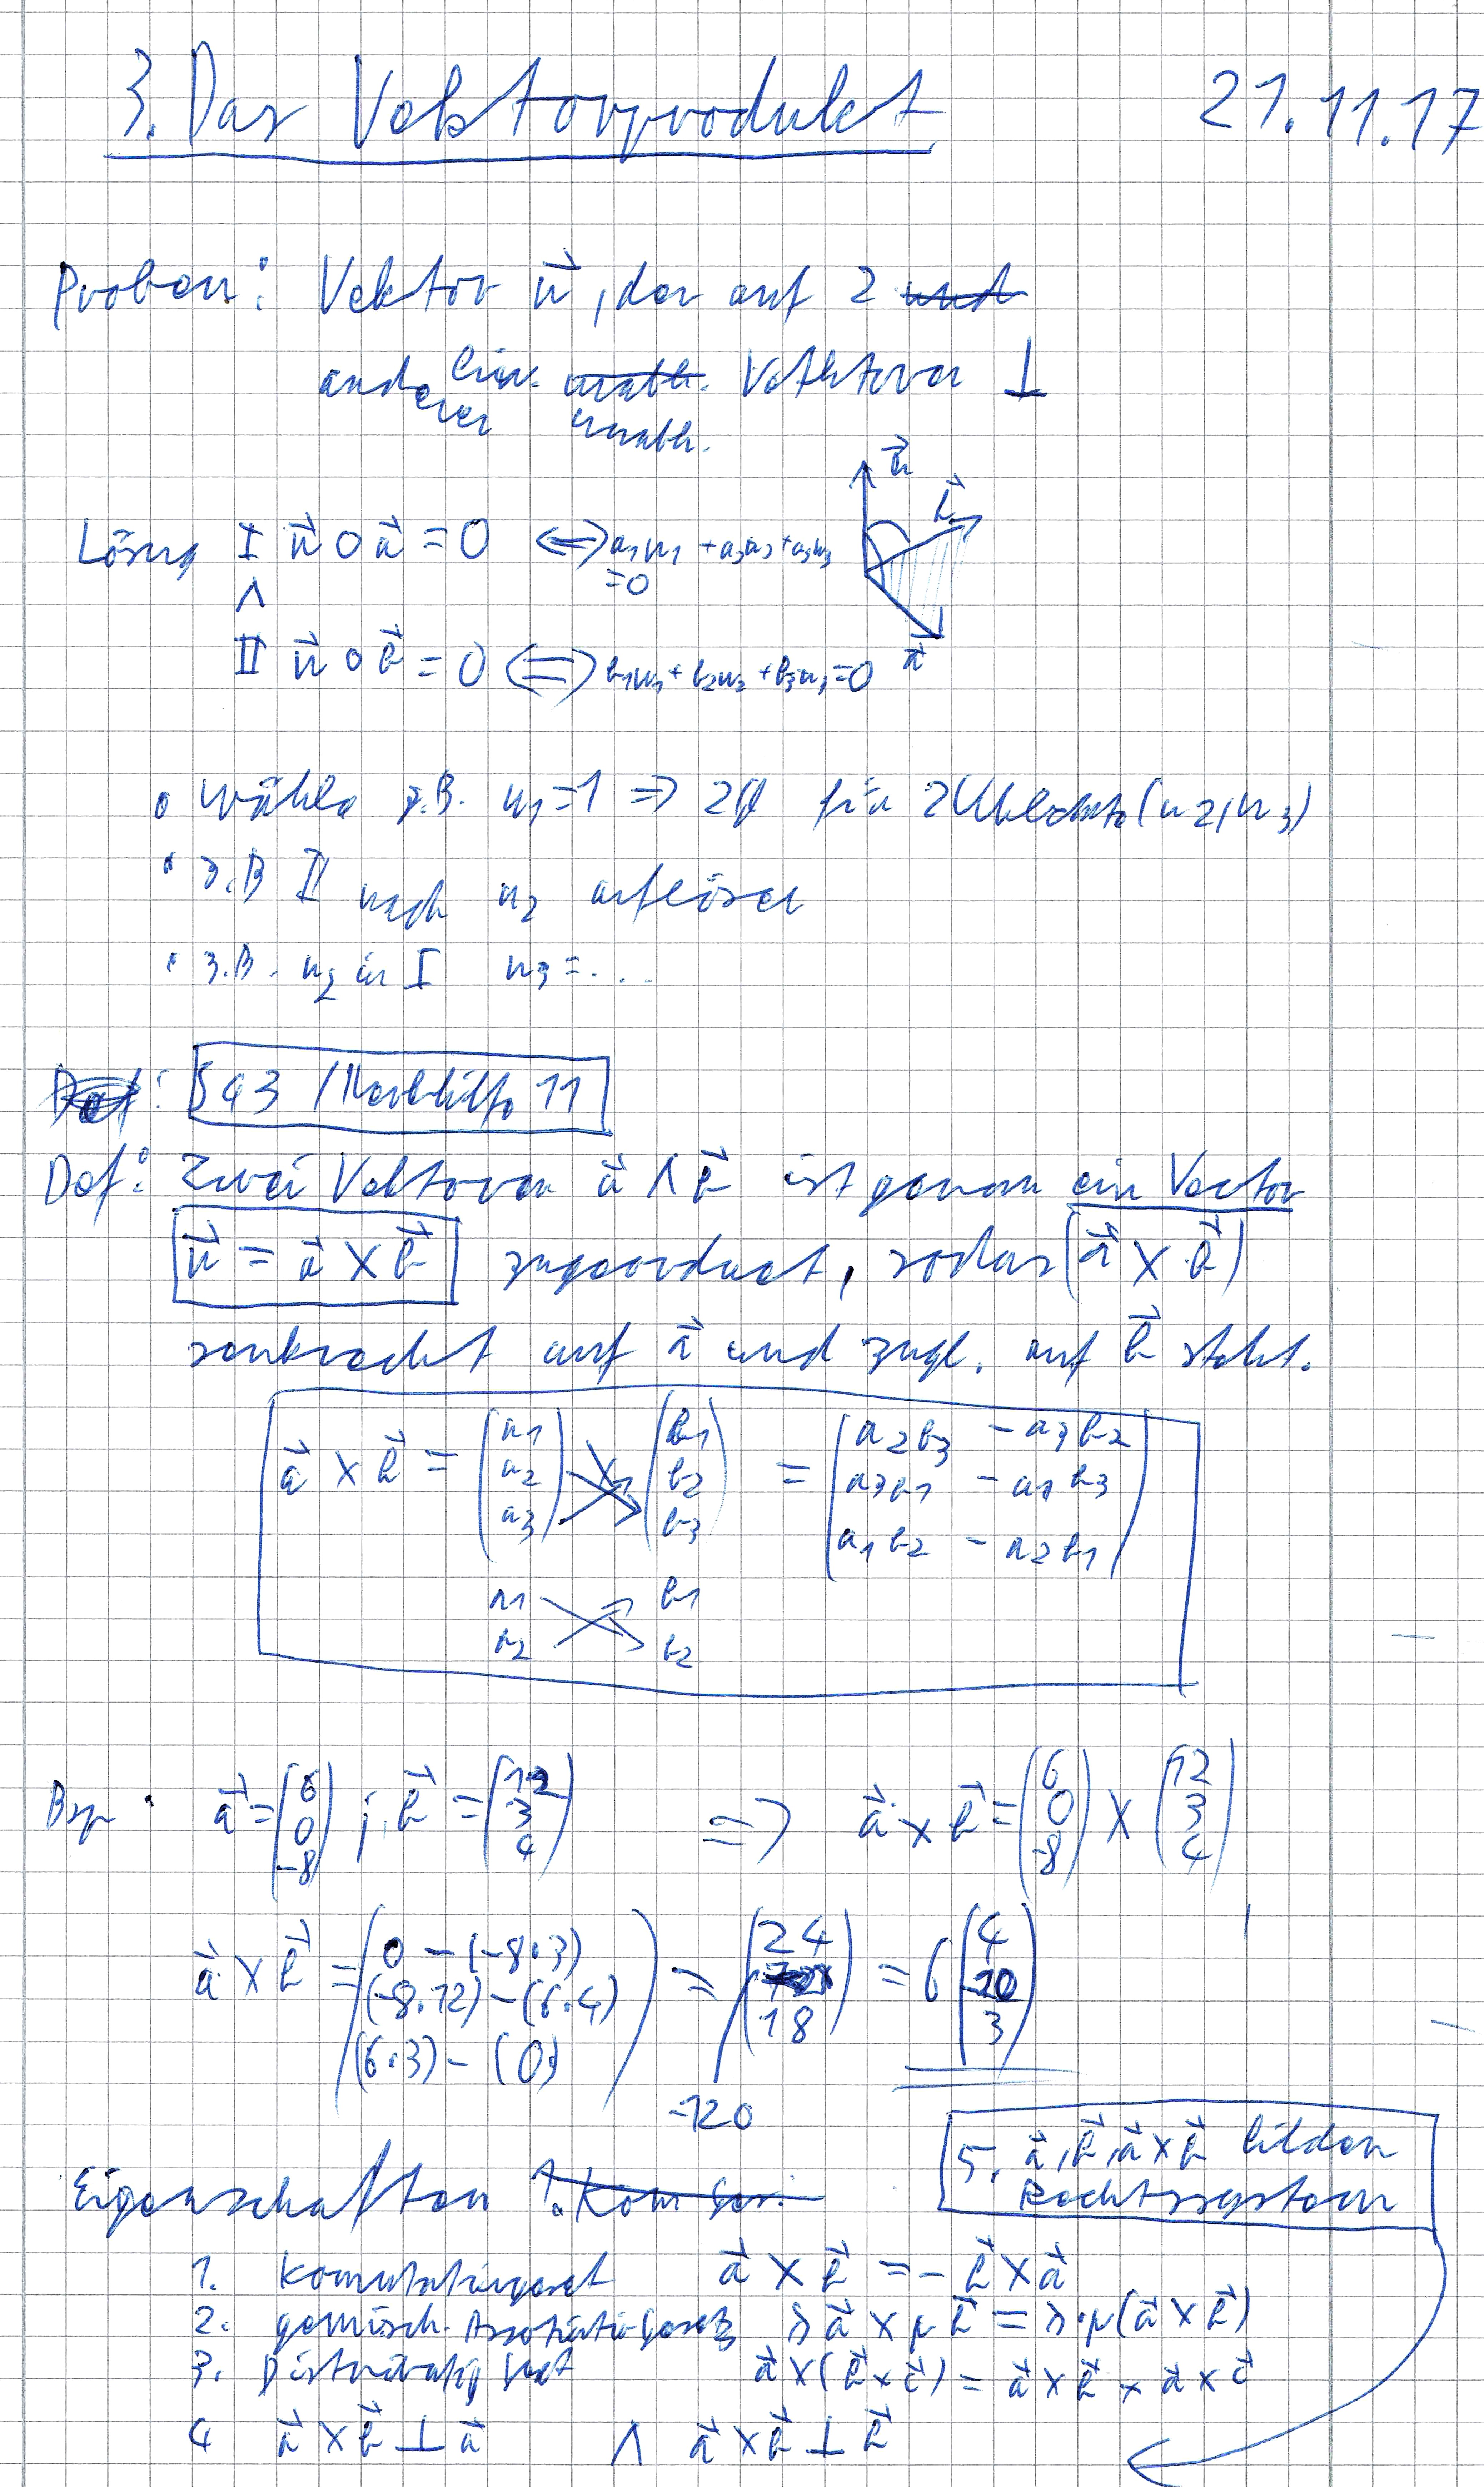 3. Das Vektorprodukt 21.11.17
Problem: Vektor n⃗, der auf 2 und
anderen lin. unabh. Vektoren ⊥
unabh.
n⃗
b⃗
a⃗
Lösung I n⃗ ∘ a⃗ = 0 ⇔ a₁n₁ + a₂n₂ + a₃n₃
= 0
∧
II n⃗ ∘ b⃗ = 0 ⇔ b₁n₁ + b₂n₂ + b₃n₃ = 0
• Wähle z.B. n₁ = 1 ⇒ 2 für 2 (n₂, n₃)
• z.B II nach n₂ auflösen
• z.B. n₂ in I n₃ = ...
Def: S43 / Merkhilfe 11
Def: Zwei Vektoren a⃗ ∧ b⃗ ist genau ein Vector
n⃗ = a⃗ × b⃗ zugeordnet, sodass (a⃗ × b⃗)
senkrecht auf a⃗ und zugl. auf b⃗ steht.
a⃗ × b⃗ = (a₁ a₂ a₃) × (b₁ b₂ b₃) = (a₂b₃ - a₃b₂
a₃b₁ - a₁b₃
a₁b₂ - a₂b₁)
a₁ b₁
a₂ b₂
Bsp: a⃗ = (6 0 -8) ; b⃗ = (12 3 4) ⇒ a⃗ × b⃗ = (6 0 -8) × (12 3 4)
a⃗ × b⃗ = (0 - (-8·3)
(-8·12) - (6·4)
(6·3) - (0)) = (24 -120 18) = 6 (4 -20 3)
5. a⃗, b⃗, a⃗ × b⃗ bilden
Rechtssystem
Eigenschaften 1. Kom Ges.
1. Komutativgeset a⃗ × b⃗ = - b⃗ × a⃗
2. gemisch. Assotiativgesetz λa⃗ × μb⃗ = λ·μ(a⃗ × b⃗)
3. Distributivgset a⃗ × (b⃗ × c⃗) = a⃗ × b⃗ × a⃗ × c⃗
4 a⃗ × b⃗ ⊥ a⃗ ∧ a⃗ × b⃗ ⊥ b⃗